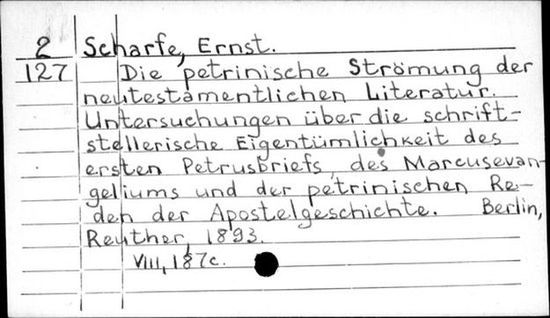 2 Scharfe, Ernst.
127 Die petrinische Strömung der
neutestamentlichen Literatur.
Untersuchungen über die schrift-
stellerische Eigentümlichkeit des
ersten Petrusbriefs, des Marcusevan-
geliums und der petrinischen Re-
den der Apostelgeschichte. Berlin,
Reuther, 1893.
VIII, 187c.